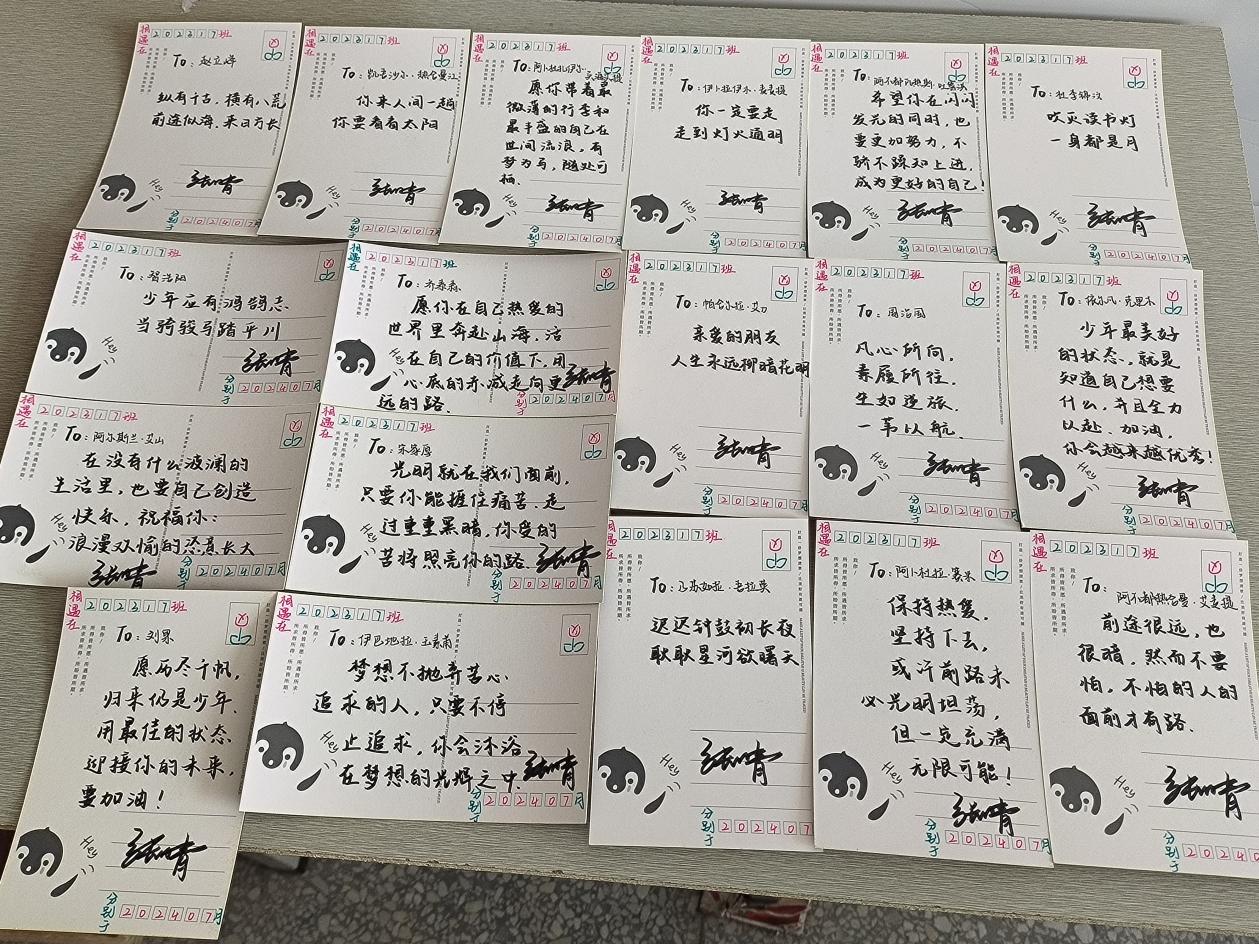 相遇在
202317班
To：赵立婷
纵有千古，横有八荒
前途似海，来日方长
Hey
分别于
202407月
202317班
To：凯麦沙尔·热合曼江
你来人间一趟
你要看看太阳
Hey
分别于
202407月
相遇在
202317班
To：
愿你带着最
微薄的行李和
最丰盛的自己在
世间流浪，有
梦为马，随处可
栖.
Hey
分别于
202407月
202317班
To：伊卜拉伊木·麦麦提
你一定要走
走到灯火通明
Hey
分别于
202407月
相遇在
202317班
To：
希望你在闪闪
发光的同时，也
要更加努力，不
骄不躁知上进，
成为更好的自己！
Hey
分别于
202407月
相遇在
202317班
To：杜李锦汶
吹灭读书灯
一身都是月
Hey
分别于
202407月
相遇在
202317班
To：浩阳
少年应有鸿鹄志
当骑骏马踏平川
Hey
分别于
202407月
相遇在
202317班
To：乔森森
愿你在自己热爱的
世界里奔赴山海，活
在自己的价值下，用
心底的赤诚走向更
远的路.
Hey
分别于
202407月
相遇在
202317班
To：帕合尔拉·艾力
亲爱的朋友
人生永远柳暗花明
Hey
分别于
202407
相遇在
202317班
To：周治国
凡心所向，
素履所往，
生如逆旅，
一苇以航.
Hey
分别于
202407月
相遇在
202317班
To：依尔凡·克里木
少年最美好
的状态，就是
知道自己想要
什么，并且全力
以赴，加油，
你会越来越优秀！
Hey
分别于
202407月
相遇在
202317班
To：阿尔斯兰·艾山
在没有什么波澜的
生活里，也要自己创造
快乐，祝福你：
浪漫欢愉的恣意长大
Hey
分别于
202407月
相遇在
202317班
To：宋家厚
光明就在我们面前，
只要你能握住痛苦，走
过重重黑暗，你受的
苦将照亮你的路.
Hey
分别于
202407月
相遇在
202317班
To：
迟迟钟鼓初长夜
耿耿星河欲曙天
Hey
分别于
202407
相遇在
202317班
To：阿卜杜拉·赛米
保持热爱，
坚持下去，
或许前路未
必光明坦荡，
但一定充满
无限可能！
Hey
分别于
202407月
相遇在
202317班
To：阿不都热合曼·艾麦提
前途很远，也
很暗，然而不要
怕，不怕的人的
面前才有路.
Hey
分别于
20240
相遇在
202317班
To：刘果
愿历尽千帆，
归来仍是少年.
用最佳的状态
迎接你的未来，
要加油！
Hey
分别于
202407月
相遇在
202317班
To：伊巴地拉·玉素甫
梦想不抛弃苦心
追求的人，只要不停
止追求，你会沐浴
在梦想的光辉之中.
Hey
分别于
202407月